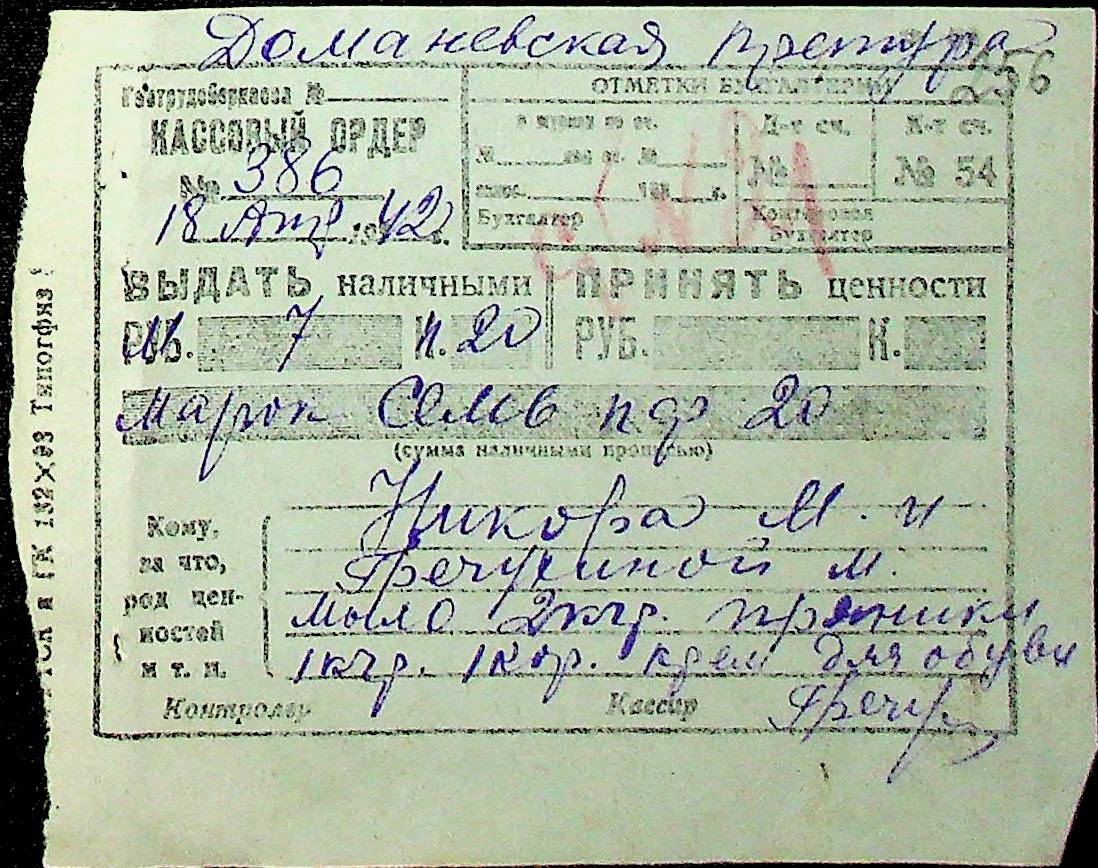 Доманевская претура
256
Гострудсберкасса №
КАССОВЫЙ ОРДЕР
№ 386
18 Апр 1942 г.
ОТМЕТКИ БУХГАЛТЕРИИ
№
Бухгалтер
Д-т сч.
№
К-т сч.
№ 54
Контировал
Бухгалтер
ВЫДАТЬ наличными
РУБ. 7 К. 20
ПРИНЯТЬ ценности
РУБ. К.
Марок Семь пф 20
(сумма наличными прописью)
Кому,
за что,
род цен-
ностей
и т. п.
Никора М. и
Гречухиной М.
мыло 2 кгр. пряники
1 кгр. 1 кор. крем для обуви
Контролер
Кассир
ГК 132×93 Типогфия